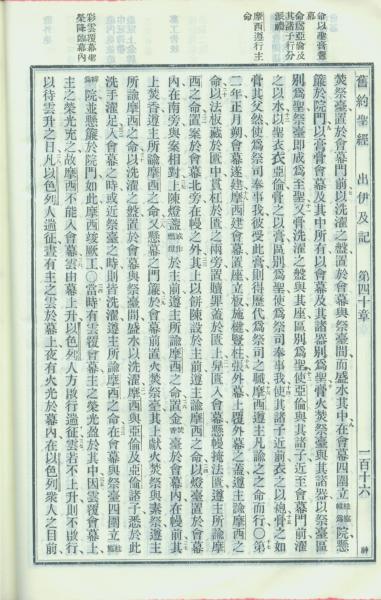 命以聖膏膏幕
命爲亞倫及其諸子行分派禮
摩西遵行主命
彩雲覆幕主榮降臨幕內
舊約聖經 出伊及記 第四十章 一百十六 神
焚祭臺置於會幕門前以洗濯之盤置於會幕與祭臺間而盛水其中在會幕四圍立柱懸帷爲院懸
簾於院門以膏膏會幕及其中所有以會幕及其諸器別爲聖膏火焚祭臺與其諸器以祭臺區
別爲聖祭臺卽成爲至聖又膏洗濯之盤與其座區別爲聖使亞倫與其諸子近至會幕門前濯
之以水以聖衣衣亞倫膏之以膏區別爲聖使爲祭司奉事我使其諸子近前衣之以袍膏之如
膏其父然使爲祭司奉事我彼受此膏則得歷代爲祭司之職摩西遵主凡諭之之命而行〇第
二年正月朔會幕遂建摩西建會幕置座立板施楗豎柱張外幕上覆外幕之蓋遵主諭摩西之
命以法板藏於匱中貫杠於匱之兩旁置贖罪蓋於匱上舁匱入會幕懸幔掩法匱遵主諭摩
西之命置案於會幕北旁在幔之外其上以餅陳設於主前遵主諭摩西之命以燈臺置於會幕
內在南旁與案相對上陳燈盞於主前遵主諭摩西之命置金香臺於會幕內在幔前其
上焚香遵主所諭摩西之命又懸幕之門簾於會幕前置火焚祭臺其上獻火焚祭與素祭遵主
所諭摩西之命以洗濯之盤置於會幕與祭臺間盛水以洗濯摩西與亞倫及亞倫諸子悉於此
洗手濯足入會幕之時或近祭臺之時則皆洗濯遵主所諭摩西之命在會幕與祭臺四圍立柱懸
帷爲院並懸簾於院門如此摩西竣厥工〇當時有雲覆會幕主之榮光盈於其中因雲覆會幕上
主之榮光充之故摩西不能入會幕雲由幕上升以色列人方啟行遄征雲若不上升則不啟行
以待雲升之日凡以色列人遄征晝有主之雲於幕上夜有火光於幕內在以色列衆人之目前